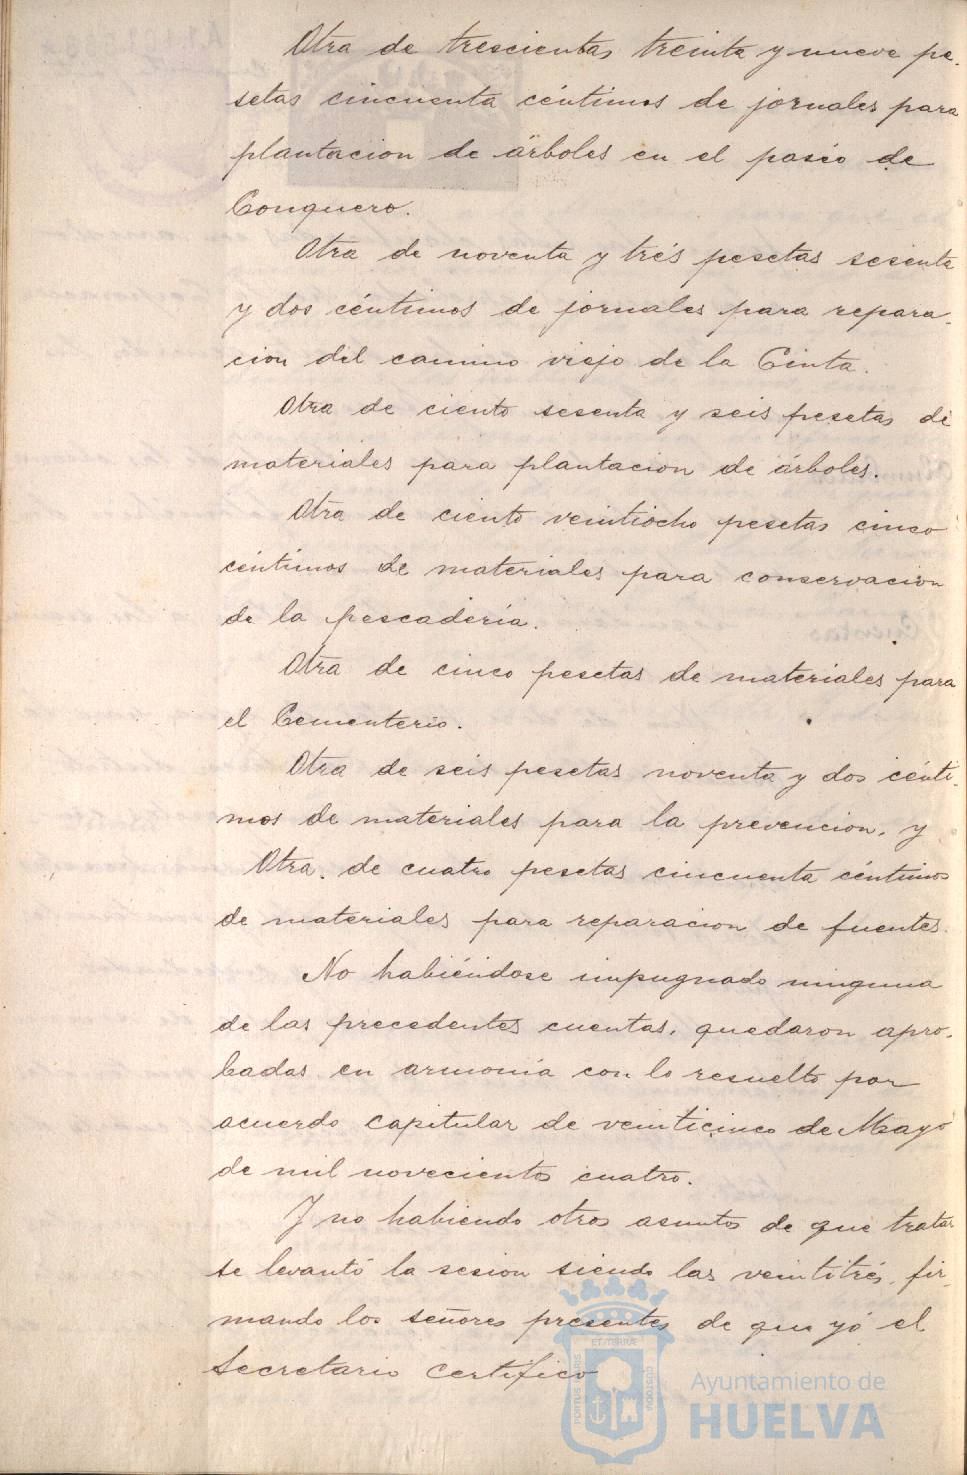 Otra de trescientas treinta y nueve pe-
setas cincuenta céntimos de jornales para
plantacion de árboles en el paseo de
Conquero.
Otra de noventa y trés pesetas sesenta
y dos céntimos de jornales para repara-
cion del camino viejo de la Cinta.
Otra de ciento sesenta y seis pesetas de
materiales para plantacion de árboles.
Otra de ciento veintiocho pesetas cinco
céntimos de materiales para conservacion
de la pescadería.
Otra de cinco pesetas de materiales para
el Cementerio.
Otra de seis pesetas noventa y dos cénti-
mos de materiales para la prevencion, y
Otra, de cuatro pesetas cincuenta céntimos
de materiales para reparacion de fuentes.
No habiéndose impugnado ninguna
de las precedentes cuentas, quedaron apro-
badas en armonía con lo resuelto por
acuerdo capitular de veinticinco de Mayo
de mil novecientos cuatro.
Y no habiendo otros asuntos de que tratar
se levantó la sesion siendo las veintitrés, fir-
mando los señores presentes de que yó el
Secretario certifico
PORTUS MARIS ET TERRÆ CUSTODIA
Ayuntamiento de
HUELVA